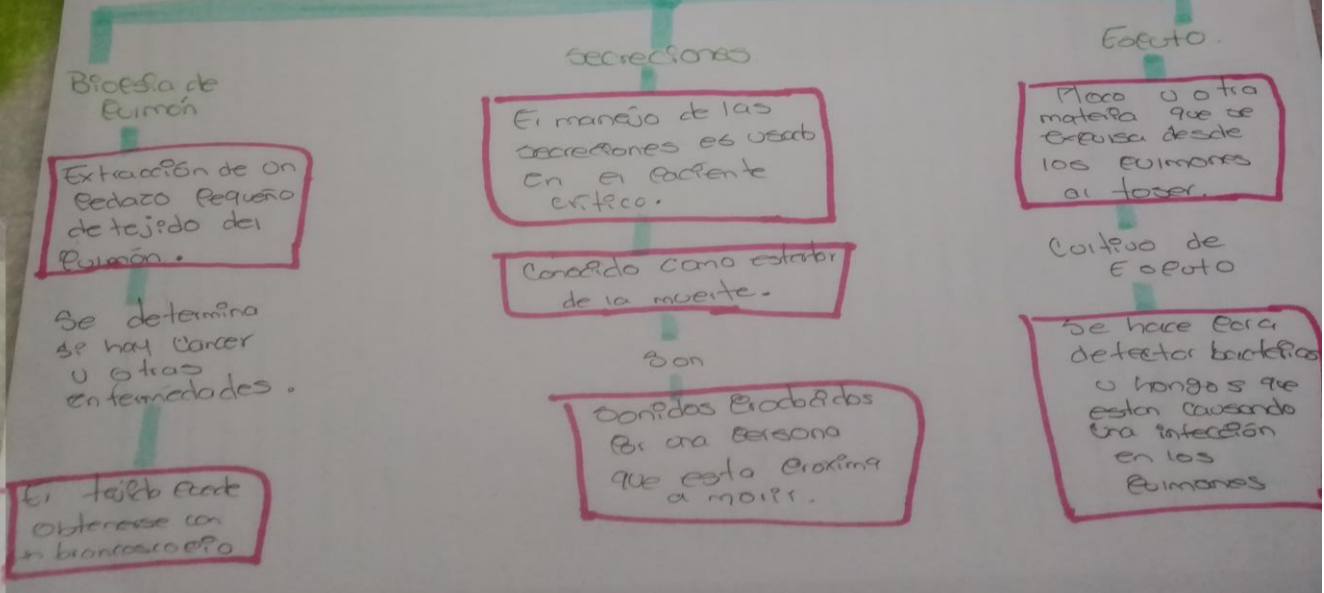 Biopsia de
Pulmón
Extracción de un
pedazo pequeño
de tejido del
pulmón.
Se determina
si hay cancer
u otras
enfermedades.
El tejido puede
obtenerse con
broncoscopio
secreciones
El manejo de las
secreciones es usado
en el paciente
crítico.
Conocido como estertor
de la muerte.
Son
sonidos producidos
por una persona
que esta proxima
a morir.
Esputo.
Moco u otra
materia que se
expulsa desde
los pulmones
al toser.
Cultivo de
Esputo
Se hace para
detectar bacterias
u hongos que
estan causando
una infección
en los
pulmones